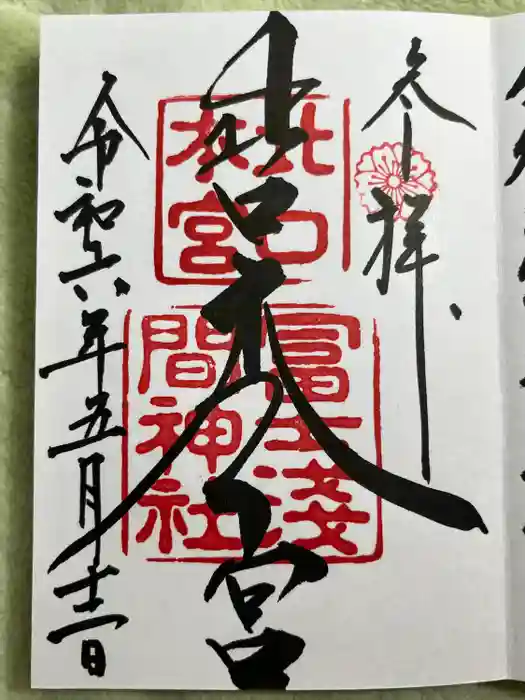 参拝
北口本宮
北口
本宮
冨士淺
間神社
令和六年五月十二日